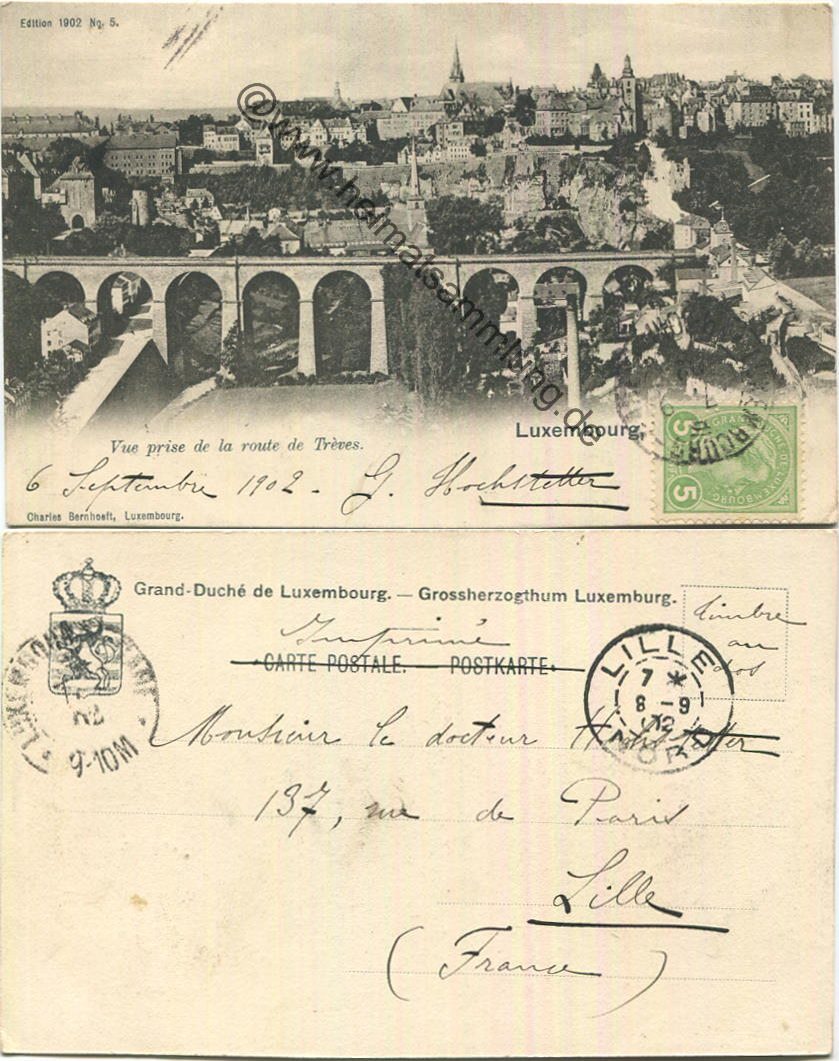 Edition 1902 No. 5.
©www.heimatsammlung.de
Luxembourg,
Vue prise de la route de Trèves.
6 Septembre 1902 - G. Hochstetter
Charles Bernhoeft, Luxembourg.
5
5
Grand-Duché de Luxembourg. — Grossherzogthum Luxemburg.
Imprimé
timbre
au
dos
CARTE POSTALE. — POSTKARTE.
LILLE
7 *
8 - 9
02
NORD
LUXEMBOURG
9-10M
Monsieur le docteur Hochstetter
137, rue de Paris
Lille
(France)